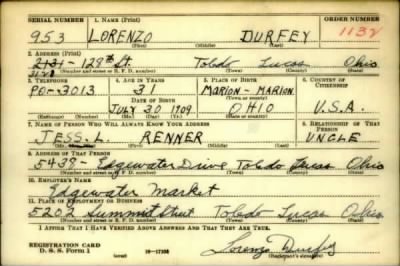 SERIAL NUMBER 1. NAME (Print) ORDER NUMBER
953 LORENZO DURFEY 1132
(First) (Middle) (Last)
2. ADDRESS (Print)
2131 - 128th St. Toledo Lucas Ohio
(Number and street or R. F. D. number) (Town) (County) (State)
3. TELEPHONE 4. AGE IN YEARS 5. PLACE OF BIRTH 6. COUNTRY OF CITIZENSHIP
PO-3013 31 MARION - MARION
DATE OF BIRTH (Town) (County)
JULY 30 1909 OHIO U.S.A.
(Exchange) (Number) (Mo.) (Day) (Yr.) (State or country)
7. NAME OF PERSON WHO WILL ALWAYS KNOW YOUR ADDRESS 8. RELATIONSHIP OF THAT PERSON
JESS. L. RENNER UNCLE
(Mr., Mrs., Miss) (First) (Middle) (Last)
9. ADDRESS OF THAT PERSON
5438 - Edgewater Drive Toledo Lucas Ohio
(Number and street or R. F. D. number) (Town) (County) (State)
10. EMPLOYER'S NAME
Edgewater Market
11. PLACE OF EMPLOYMENT OR BUSINESS
5202 Summit Street Toledo Lucas Ohio
(Number and street or R. F. D. number) (Town) (County) (State)
I AFFIRM THAT I HAVE VERIFIED ABOVE ANSWERS AND THAT THEY ARE TRUE.
REGISTRATION CARD
D. S. S. Form 1 (over) 16-17105 Lorenzo Durfey
(Registrant's signature)